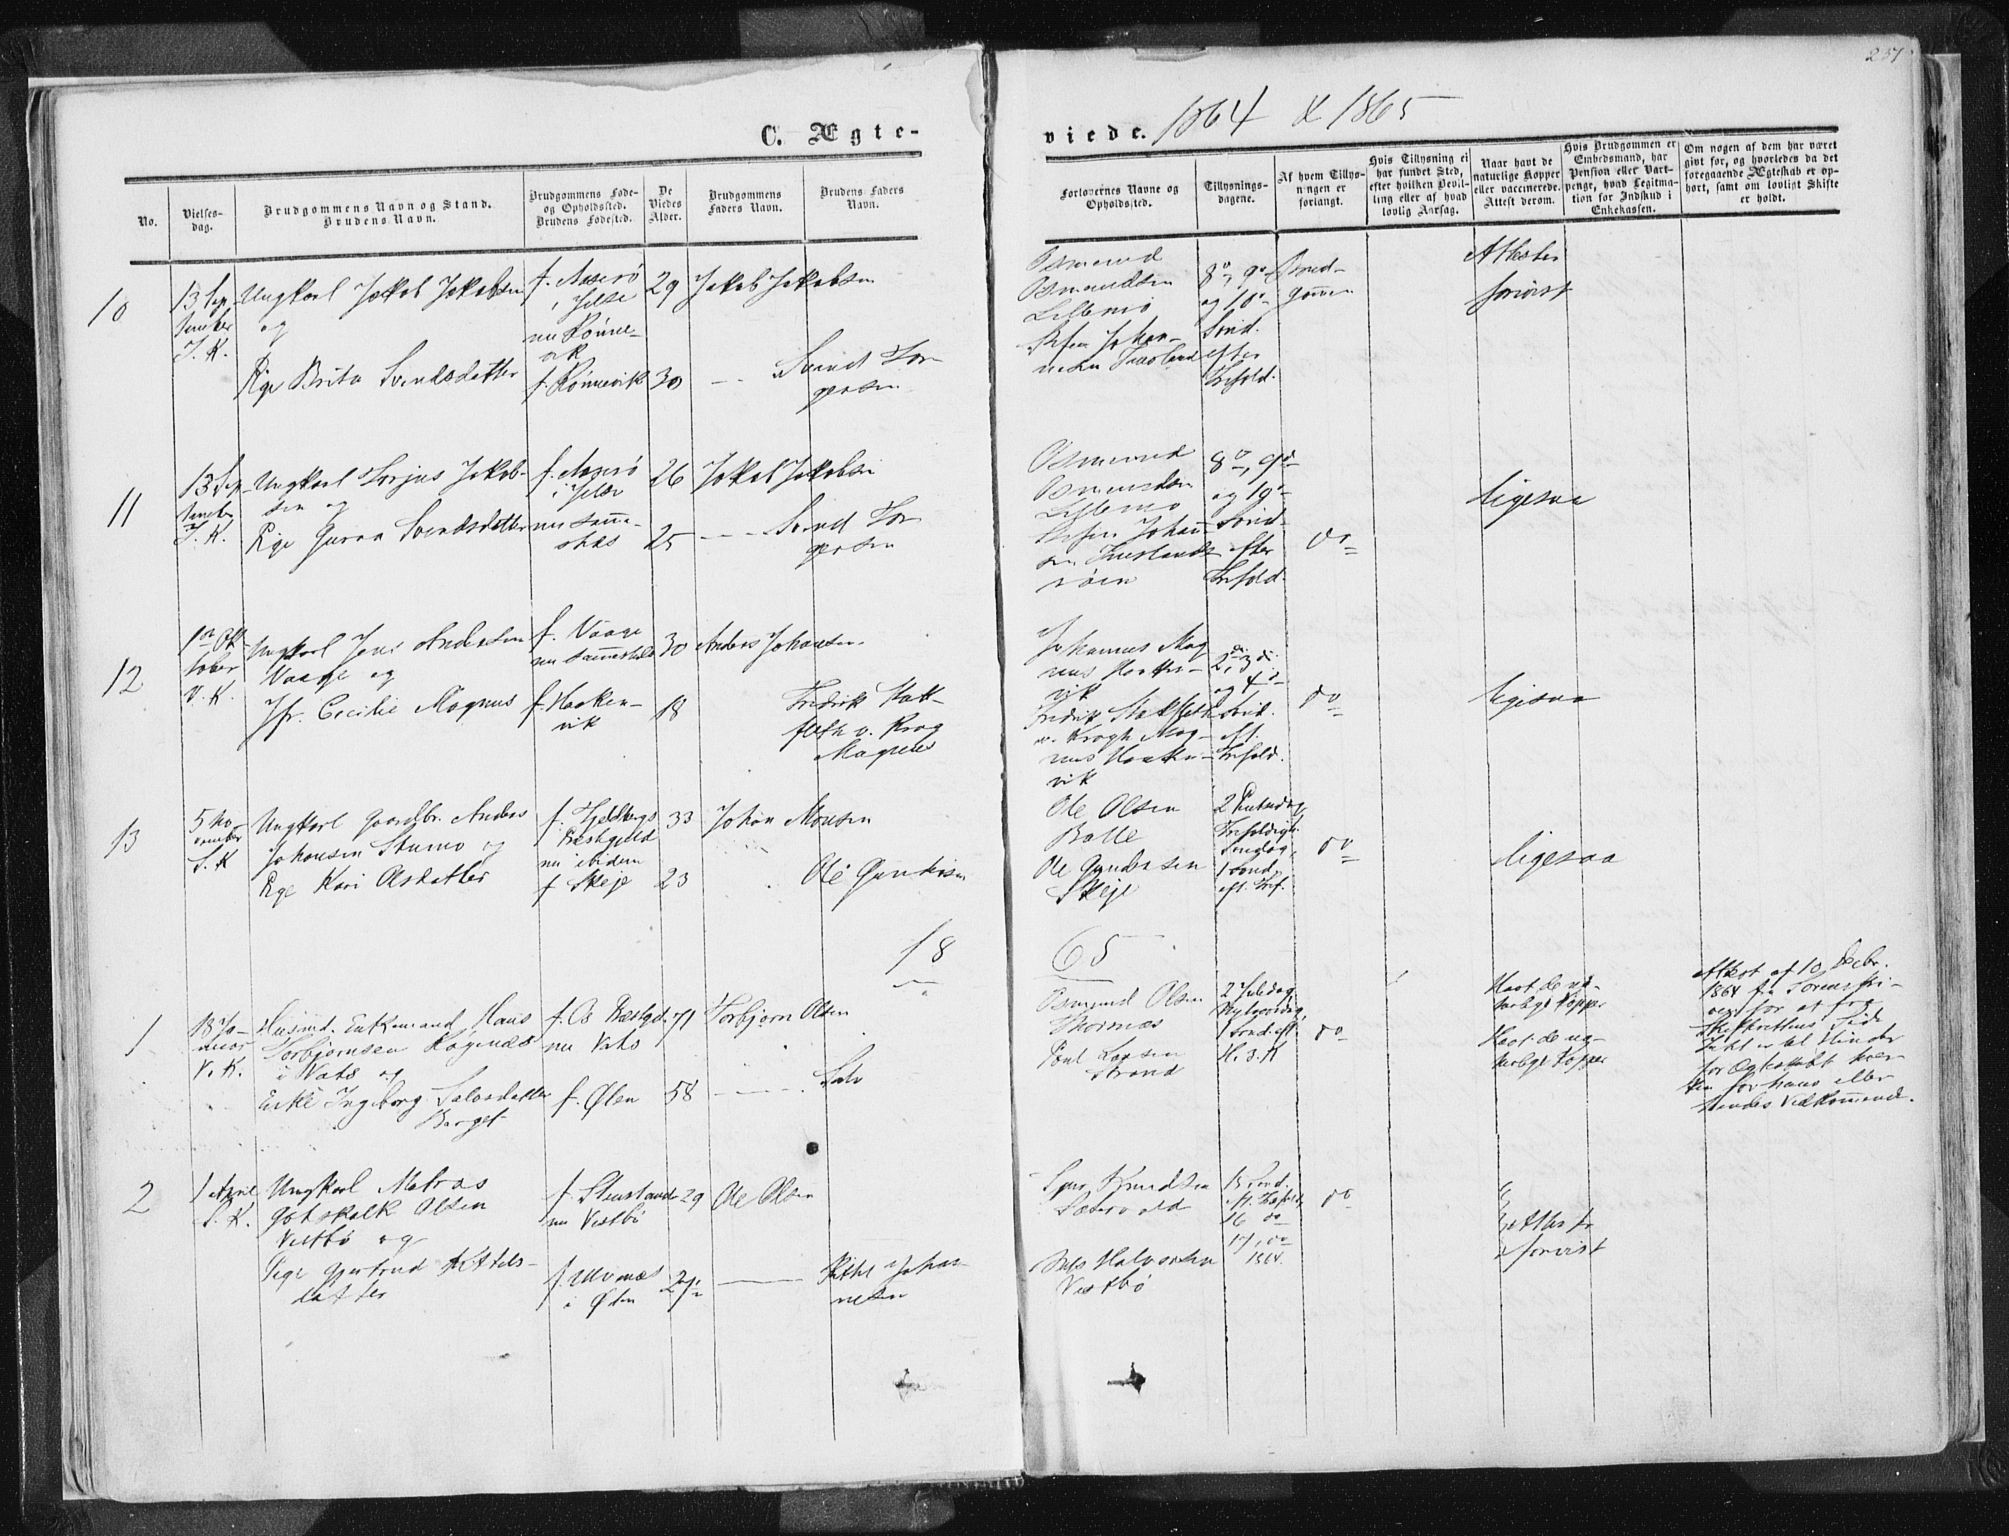 251
C. Ægte-
viede. 1864 & 1865
No.
Vielses-
dag.
Brudgommens Navn og Stand.
Brudens Navn.
Brudgommens Føde-
og Opholdssted.
Brudens Fødested.
De
Viedes
Alder.
Brudgommens
Faders Navn.
Brudens Faders
Navn.
Forlovernes Navne og
Opholdssted.
Tillysnings-
dagene.
Af hvem Tillys-
ningen er
forlangt.
Hvis Tillysning ei
har fundet Sted,
efter hvilken Bevil-
ling eller af hvad
lovlig Aarsag.
Naar havt de
naturlige Kopper
eller vaccinerede.
Attest derom.
Hvis Brudgommen er
Embedsmand, har
Pension eller Vart-
penge, hvad Legitima-
tion for Indskud i
Enkekassen.
Om nogen af dem har været
gift før, og hvorledes da det
foregaaende Ægteskab er op-
hørt, samt om lovligt Skifte
er holdt.
10
13 Sep
tember
Ungkarl Jakob Jakobsen
og
Pige Brita Svendsdatter
i Jelse
nu Rønne-
vik
f. Rønnevik
29
30
Jakob Jakobsen
Svend Tor
gersen
Osmund
Osmundsen
Lillemo
8de, 9de
og 10de
Sønd.
efter
Trefold.
Brud-
gommen
Attester
forevist
11
13 Sep
tember
Ungkarl Torjus Jakob-
sen og
Pige Guroa Svendsdatter
i Jelse
nu samme-
steds
26
25
Jakob Jakobsen
Svend Tor
gersen
Osmund
Osmundsen
Lillemo
8de, 9de
og 10de
Sønd.
efter
Trefold.
do
ligesaa
12
1ste Ok
tober
V. K.
Ungkarl Jens Andersen
Vaage og
Jfr. Cecilie Magnus
f. Vaage
nu sammesteds
f. Haaken-
vik
30
18
Anders Johansen
Fredrik Hat-
feth v. Krog
Magnus
Johannes Mag
nus Haaken-
vik
v. Krogh Mag-
nus Haaken-
vik
2de, 3de
og 4de
Sønd.
eft.
Trefold.
do
ligesaa
13
5 No-
vember
S. K
Ungkarl Gaardbr. Anders
Johansen Stumo og
Pige Kari Olsdatter
f. Fjeldbergs
Præstegjeld
nu ibidem
f Skeje
33
23
Johan Monsen
Ole Gundersen
Ole Olsen
Batte
Ole Gundersen
Skeje
2 Pintsedag,
Trefoldigh.
Søndag,
1 Sønd.
eft. Tref.
do
ligesaa
18
65
1
18 Ja-
nuar
V. K.
Husmd. Enkemand Hans
Torbjørnsen Ragenæs
i Vats og
Enke Ingeborg Salvesdatter
Berget
f. Os Præstgd.
nu Vats
f. Ølen
71
58
Torbjørn Olsen
Salv
Osmund Olsen
Thornæs
Poul Larsen
Strand
2 Juledag,
Nytaarsdag,
1 Sønd. eft.
H. 3. K
do
Havt de na-
turlige Kopper
Havt de na-
turlige Kopper
Attest af 10 Decbr.
1864 fra Sorenskri-
ver for at fra
Skifterettens Side
Intet er til Hinder
for Ægteskabet hver-
ken for hans eller
hendes Vedkommende.
2
1 April
S. K.
Ungkarl Matras
Gotskalk Olsen
Vestbø og
Pige Gjertrud Kittels-
datter
nu Vestbø
f. Ulvenæs
i Ølen
29
Ole Olsen
Kittel Johan
nesen
Sjur Knudsen
Halvorsen
Vestbø
15 Sønd.
eft. Trefold.
16 do
17, do
1864.
do
Attester
forevist